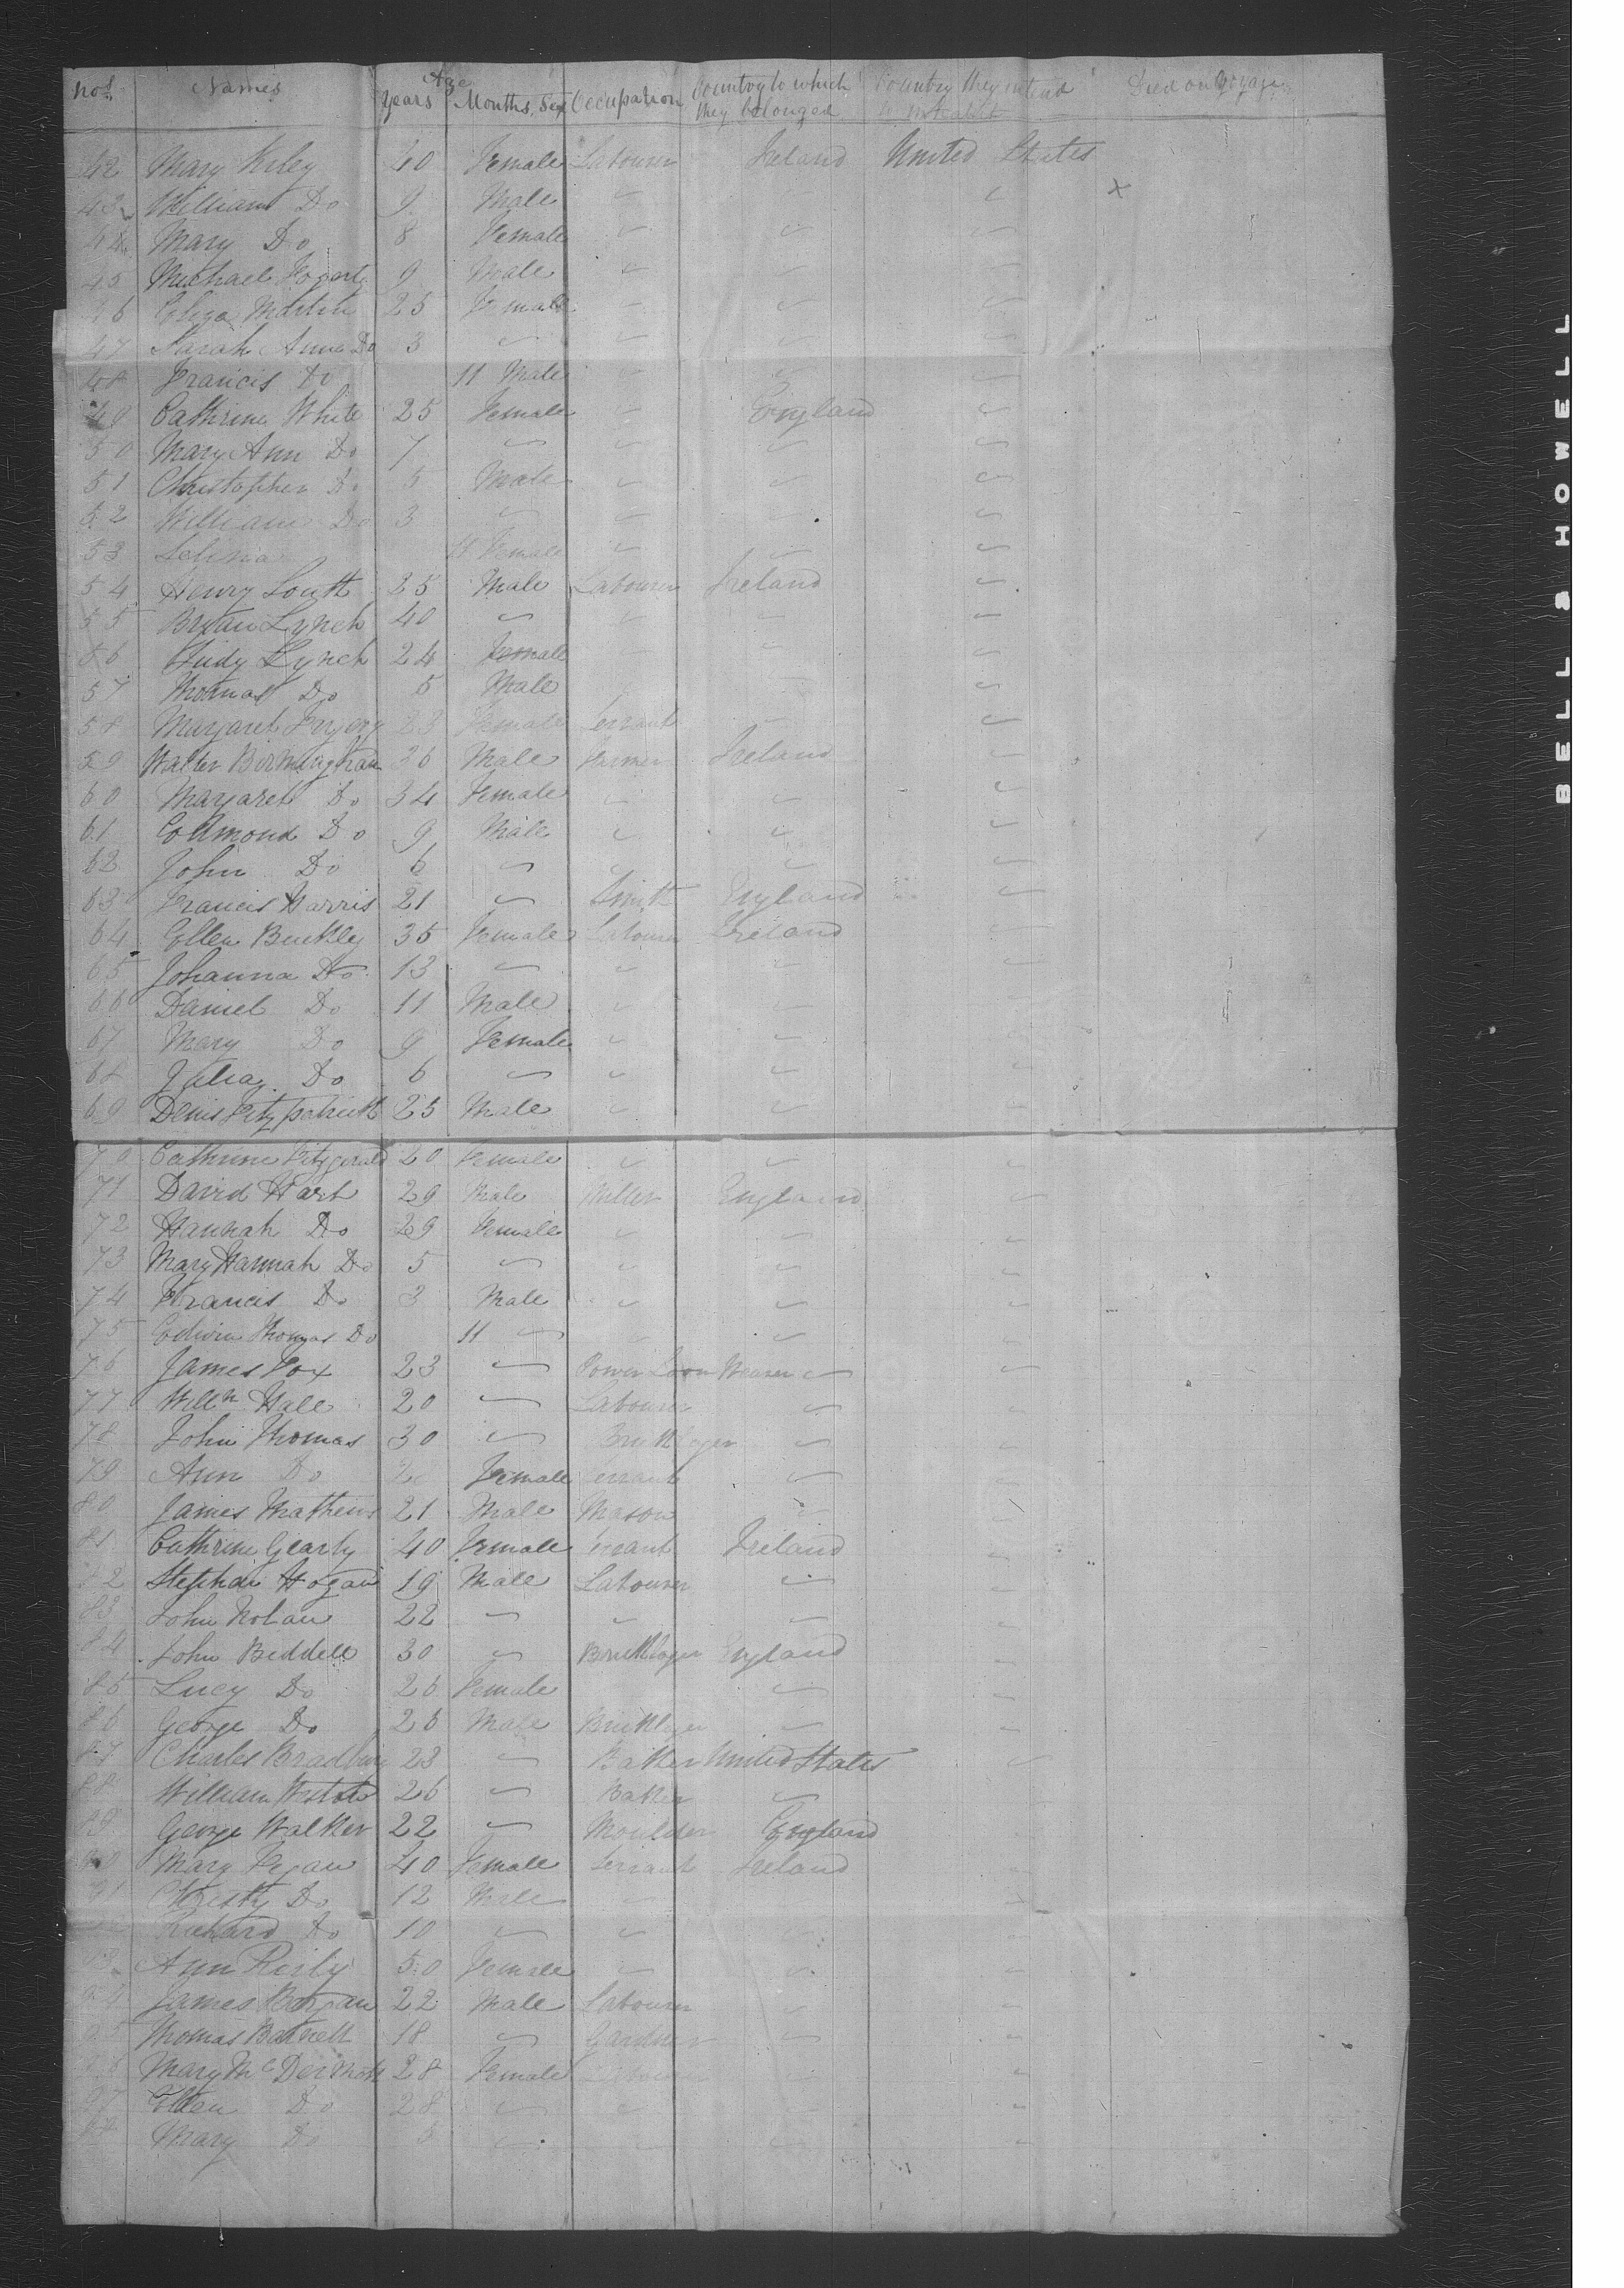 Nos. Names Age Years Months Sex Occupation Country to which they belonged Country they intend to inhabit Died on Voyage
42 Mary Kiley 40 Female Labourer Ireland United States
43 William Do 9 Male " " x
44 Mary Do 8 Female " " "
45 Michael Fogarty 9 Male " " "
46 Eliza Martin 25 Female " " "
47 Sarah Anne Do 3 " " "
48 Francis Do 11 Male " " "
49 Cathrine White 25 Female " England "
50 Mary Ann Do 7 " " " "
51 Christopher Do 5 Male " " "
52 William Do 3 " " " "
53 Selina 11 Female " " "
54 Henry South 25 Male Labourer Ireland "
55 Bryan Lynch 40 " " " "
56 Judy Lynch 24 Female " " "
57 Thomas Do 5 Male "
58 Margaret 23 Female Servant " "
59 Walter Birmingham 36 Male Farmer Ireland "
60 Margaret Do 34 Female " " "
61 Edmond Do 9 Male " " "
62 John Do 6 " " " "
63 Francis Harris 21 " Smith England "
64 Ellen Buckley 35 Female Labourer Ireland "
65 Johanna Do 13 " " " "
66 Daniel Do 11 Male " " "
67 Mary Do 9 Female " " "
68 Julia Do 6 " " " "
69 Denis Fitzpatrick 25 Male " " "
70 Cathrine Fitzgerald 20 Female " " "
71 David Hart 29 Male Miller England "
72 Hannah Do 29 Female " " "
73 Mary Hannah Do 5 " " " "
74 Francis Do 3 Male " " "
75 Edwin Thomas Do 11 " " " "
76 James Fox 23 " Power Loom Weaver " "
77 Willm Hall 20 " Labourer " "
78 John Thomas 30 " Bricklayer " "
79 Ann Do Female Servant " "
80 James Mathews 21 Male Mason " "
81 Cathrine Gearty 40 Female Servant Ireland "
82 Stephen Hogan 19 Male Labourer " "
83 John Nolan 22 " " " "
84 John Biddell 30 " Bricklayer England "
85 Lucy Do 26 Female " "
86 George Do 26 Male Bricklyer " "
87 Charles Bradbury 23 " Baker United States "
88 William 26 " Baker "
89 George Walker 22 " Moulder England
90 Mary Fegan 40 Female Servant Ireland "
91 Christy Do 12 Male " "
92 Richard Do 10 " " " "
93 Ann Reily 50 Female " " "
94 James 22 Male Labourer " "
95 Thomas Barrett 18 " Gardner " "
96 Mary McDermott 28 Female Labourer " "
97 Ellen Do 28 " " " "
98 Mary Do " " " "
BELL & HOWELL